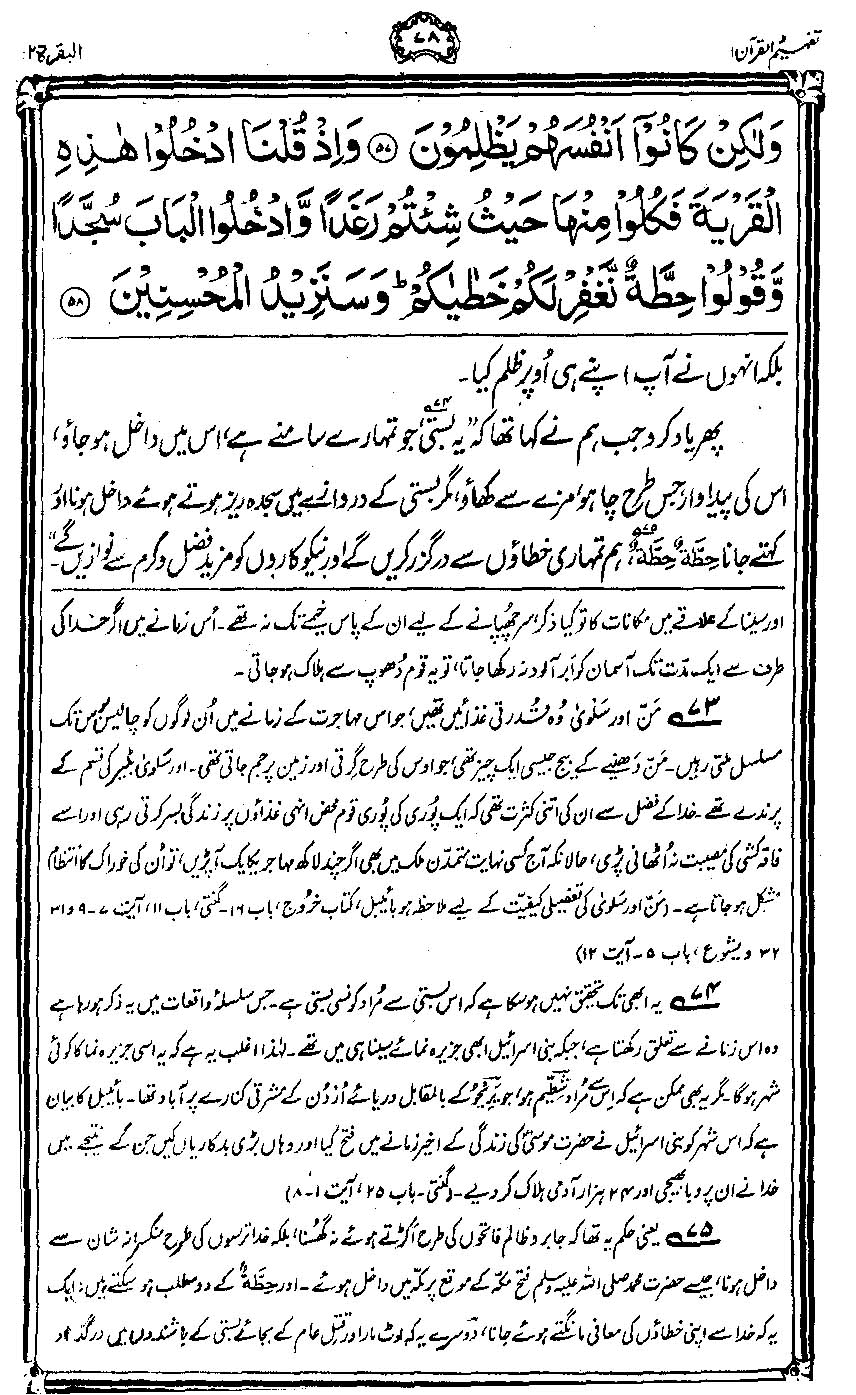 تفہیم القرآن ۱
۷۸
البقرۃ ۲
وَلٰكِنْ كَانُوْٓا اَنْفُسَهُمْ يَظْلِمُوْنَ ﴿۵۷﴾ وَاِذْ قُلْنَا ادْخُلُوْا هٰذِهِ
الْقَرْيَةَ فَكُلُوْا مِنْهَا حَيْثُ شِئْتُمْ رَغَدًا وَّادْخُلُوا الْبَابَ سُجَّدًا
وَّقُوْلُوْا حِطَّةٌ نَّغْفِرْ لَكُمْ خَطٰيٰكُمْ ؕ وَسَنَزِيْدُ الْمُحْسِنِيْنَ ﴿۵۸﴾
بلکہ انہوں نے آپ اپنے ہی اُوپر ظلم کیا۔
پھر یاد کرو جب ہم نے کہا تھا کہ ”یہ بستی۷۴ جو تمہارے سامنے ہے، اس میں داخل ہو جاؤ،
اس کی پیداوار، جس طرح چاہو، مزے سے کھاؤ، مگر بستی کے دروازے میں سجدہ ریز ہوتے ہوئے داخل ہونا اور
کہتے جانا حِطَّۃٌ حِطَّۃٌ۷۵، ہم تمہاری خطاؤں سے درگزر کریں گے اور نیکوکاروں کو مزید فضل و کرم سے نوازیں گے“۔
اور سینا کے علاقے میں مکانات کا تو کیا ذکر، سر چھپانے کے لیے ان کے پاس خیمے تک نہ تھے۔ اُس زمانے میں اگر خدا کی
طرف سے ایک مدّت تک آسمان کو اَبر آلود نہ رکھا جاتا، تو یہ قوم دُھوپ سے ہلاک ہو جاتی۔
۷۳ مَنّ اور سَلْویٰ وُہ قُدرتی غذائیں تھیں، جو اس مہاجرت کے زمانے میں اُن لوگوں کو چالیس برس تک
مسلسل ملتی رہیں۔ مَنّ دَھنیے کے بیج جیسی ایک چیز تھی، جو اوس کی طرح گرتی اور زمین پر جم جاتی تھی۔ اور سَلْویٰ بٹیر کی قسم کے
پرندے تھے۔ خدا کے فضل سے ان کی اتنی کثرت تھی کہ ایک پُوری کی پُوری قوم محض انہی غذاؤں پر زندگی بسر کرتی رہی اور اسے
فاقہ کشی کی مصیبت نہ اُٹھانی پڑی، حالانکہ آج کسی نہایت متمدّن ملک میں بھی اگر چند لاکھ مہاجر یکایک آ پڑیں، تو اُن کی خوراک کا انتظام
مشکل ہو جاتا ہے۔ (مَنّ اور سَلْویٰ کی تفصیلی کیفیّت کے لیے ملاحظہ ہو بائیبل، کتاب خُروج، باب ۱۶۔ گنتی، باب ۱۱، آیت ۷-۹ و ۳۱
۳۲ و یشوع، باب ۵۔ آیت ۱۲)
۷۴ یہ ابھی تک تحقیق نہیں ہو سکا ہے کہ اس بستی سے مُراد کونسی بستی ہے۔ جس سلسلۂ واقعات میں یہ ذکر ہو رہا ہے
وہ اس زمانے سے تعلق رکھتا ہے، جبکہ بنی اسرائیل ابھی جزیرہ نمائے سینا ہی میں تھے۔ لہٰذا اغلب یہ ہے کہ یہ اسی جزیرہ نما کا کوئی
شہر ہو گا۔ مگر یہ بھی ممکن ہے کہ اِس سے مُراد شِطّیم ہو، جو یریحو کے بالمقابل دریائے اُردُن کے مشرقی کنارے پر آباد تھا۔ بائیبل کا بیان
ہے کہ اس شہر کو بنی اسرائیل نے حضرت موسیٰؑ کی زندگی کے اخیر زمانے میں فتح کیا اور وہاں بڑی بدکاریاں کیں جن کے نتیجے میں
خدا نے ان پر وبا بھیجی اور ۲۴ ہزار آدمی ہلاک کر دیے۔ (گنتی۔ باب ۲۵، آیت ۱-۸)
۷۵ یعنی حکم یہ تھا کہ جابر و ظالم فاتحوں کی طرح اکڑتے ہوئے نہ گھُسنا، بلکہ خدا ترسوں کی طرح منکسرانہ شان سے
داخل ہونا، جیسے حضرت محمد صلی اللہ علیہ وسلم فتح مکّہ کے موقع پر مکّہ میں داخل ہوئے۔ اور حِطَّۃٌ کے دو مطلب ہو سکتے ہیں: ایک
یہ کہ خدا سے اپنی خطاؤں کی معافی مانگتے ہوئے جانا، دُوسرے یہ کہ لوٹ مار اور قتلِ عام کے بجائے بستی کے باشندوں میں درگذر